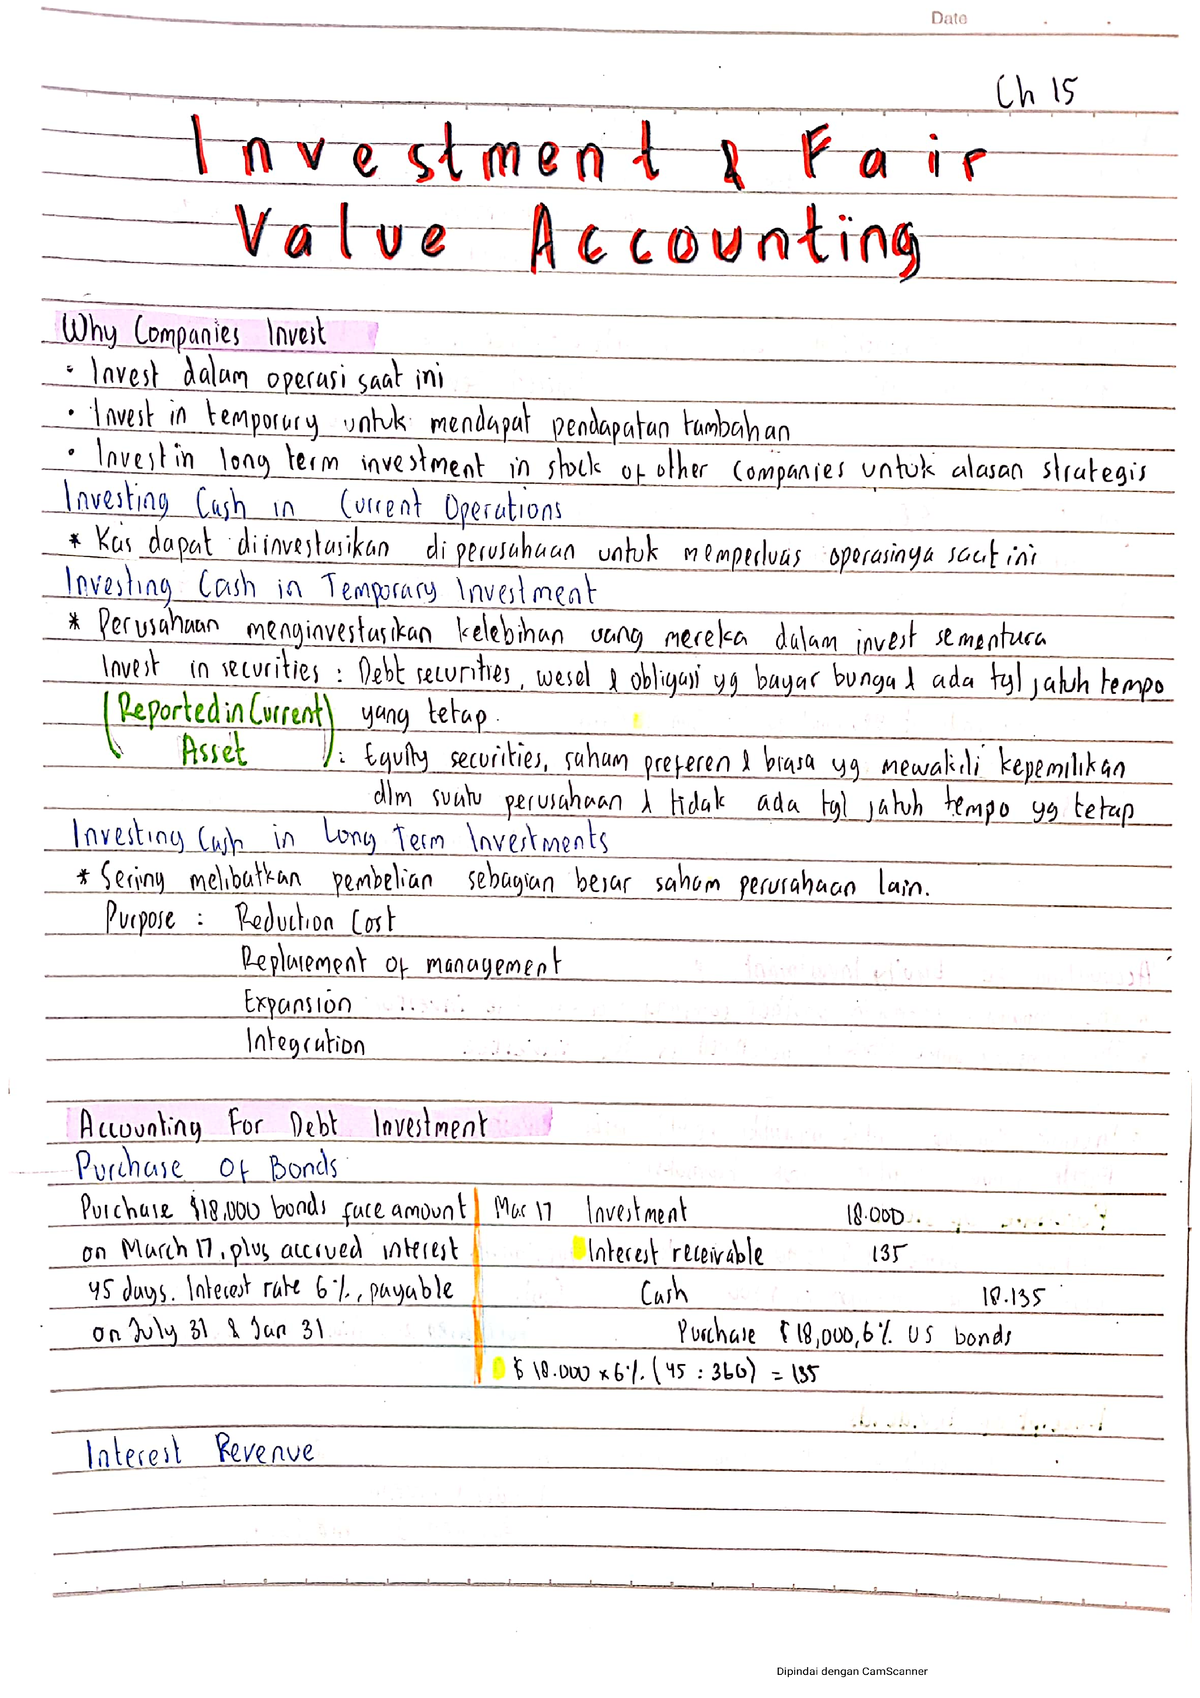 Date
Ch 15
Investment & Fair
Value Accounting
Why Companies Invest
• Invest dalam operasi saat ini
• Invest in temporary untuk mendapat pendapatan tambahan
• Invest in long term investment in stock of other companies untuk alasan strategis
Investing Cash in Current Operations
* Kas dapat diinvestasikan di perusahaan untuk memperluas operasinya saat ini
Investing Cash in Temporary Investment
* Perusahaan menginvestasikan kelebihan uang mereka dalam invest sementara
Invest in securities : Debt securities, wesel & obligasi yg bayar bunga & ada tgl jatuh tempo
(Reported in Current yang tetap.
Asset) : Equity securities, saham preferen & biasa yg mewakili kepemilikan
dlm suatu perusahaan & tidak ada tgl jatuh tempo yg tetap
Investing Cash in Long Term Investments
* Sering melibatkan pembelian sebagian besar saham perusahaan lain.
Purpose : Reduction Cost
Replacement of management
Expansion
Integration
Accounting For Debt Investment
Purchase Of Bonds
Purchase $18.000 bonds face amount Mar 17 Investment 18.000
on March 17, plus accrued interest Interest receivable 135
45 days. Interest rate 6%, payable Cash 18.135
on July 31 & Jan 31 Purchase $18,000, 6% US bonds
$ 18.000 x 6% (45 : 360) = 135
Interest Revenue
Dipindai dengan CamScanner